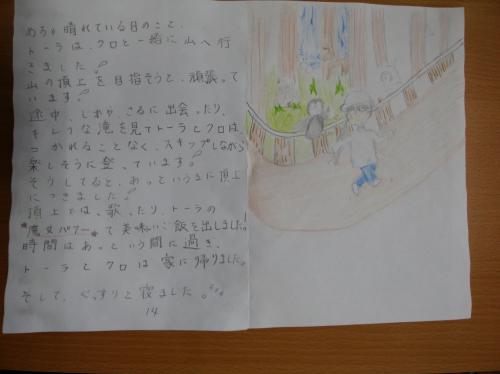 めちゃ晴れている日のこと、
トーラは、クロと一緒に山へ行
きました!
山の頂上を目指そうと、頑張って
います!
途中、しかや、さるに出会ったり、
キレイな滝を見てトーラとクロは
つかれることなく、スキップしながら
楽しそうに登っています!
そうしてると、あっというまに頂上
につきました!
頂上では、歌ったり、トーラの
魔女パワーで美味しいご飯を出しました!
時間はあっという間に過ぎ、
トーラとクロは家に帰りました。
そして、ぐっすりと寝ました。
14